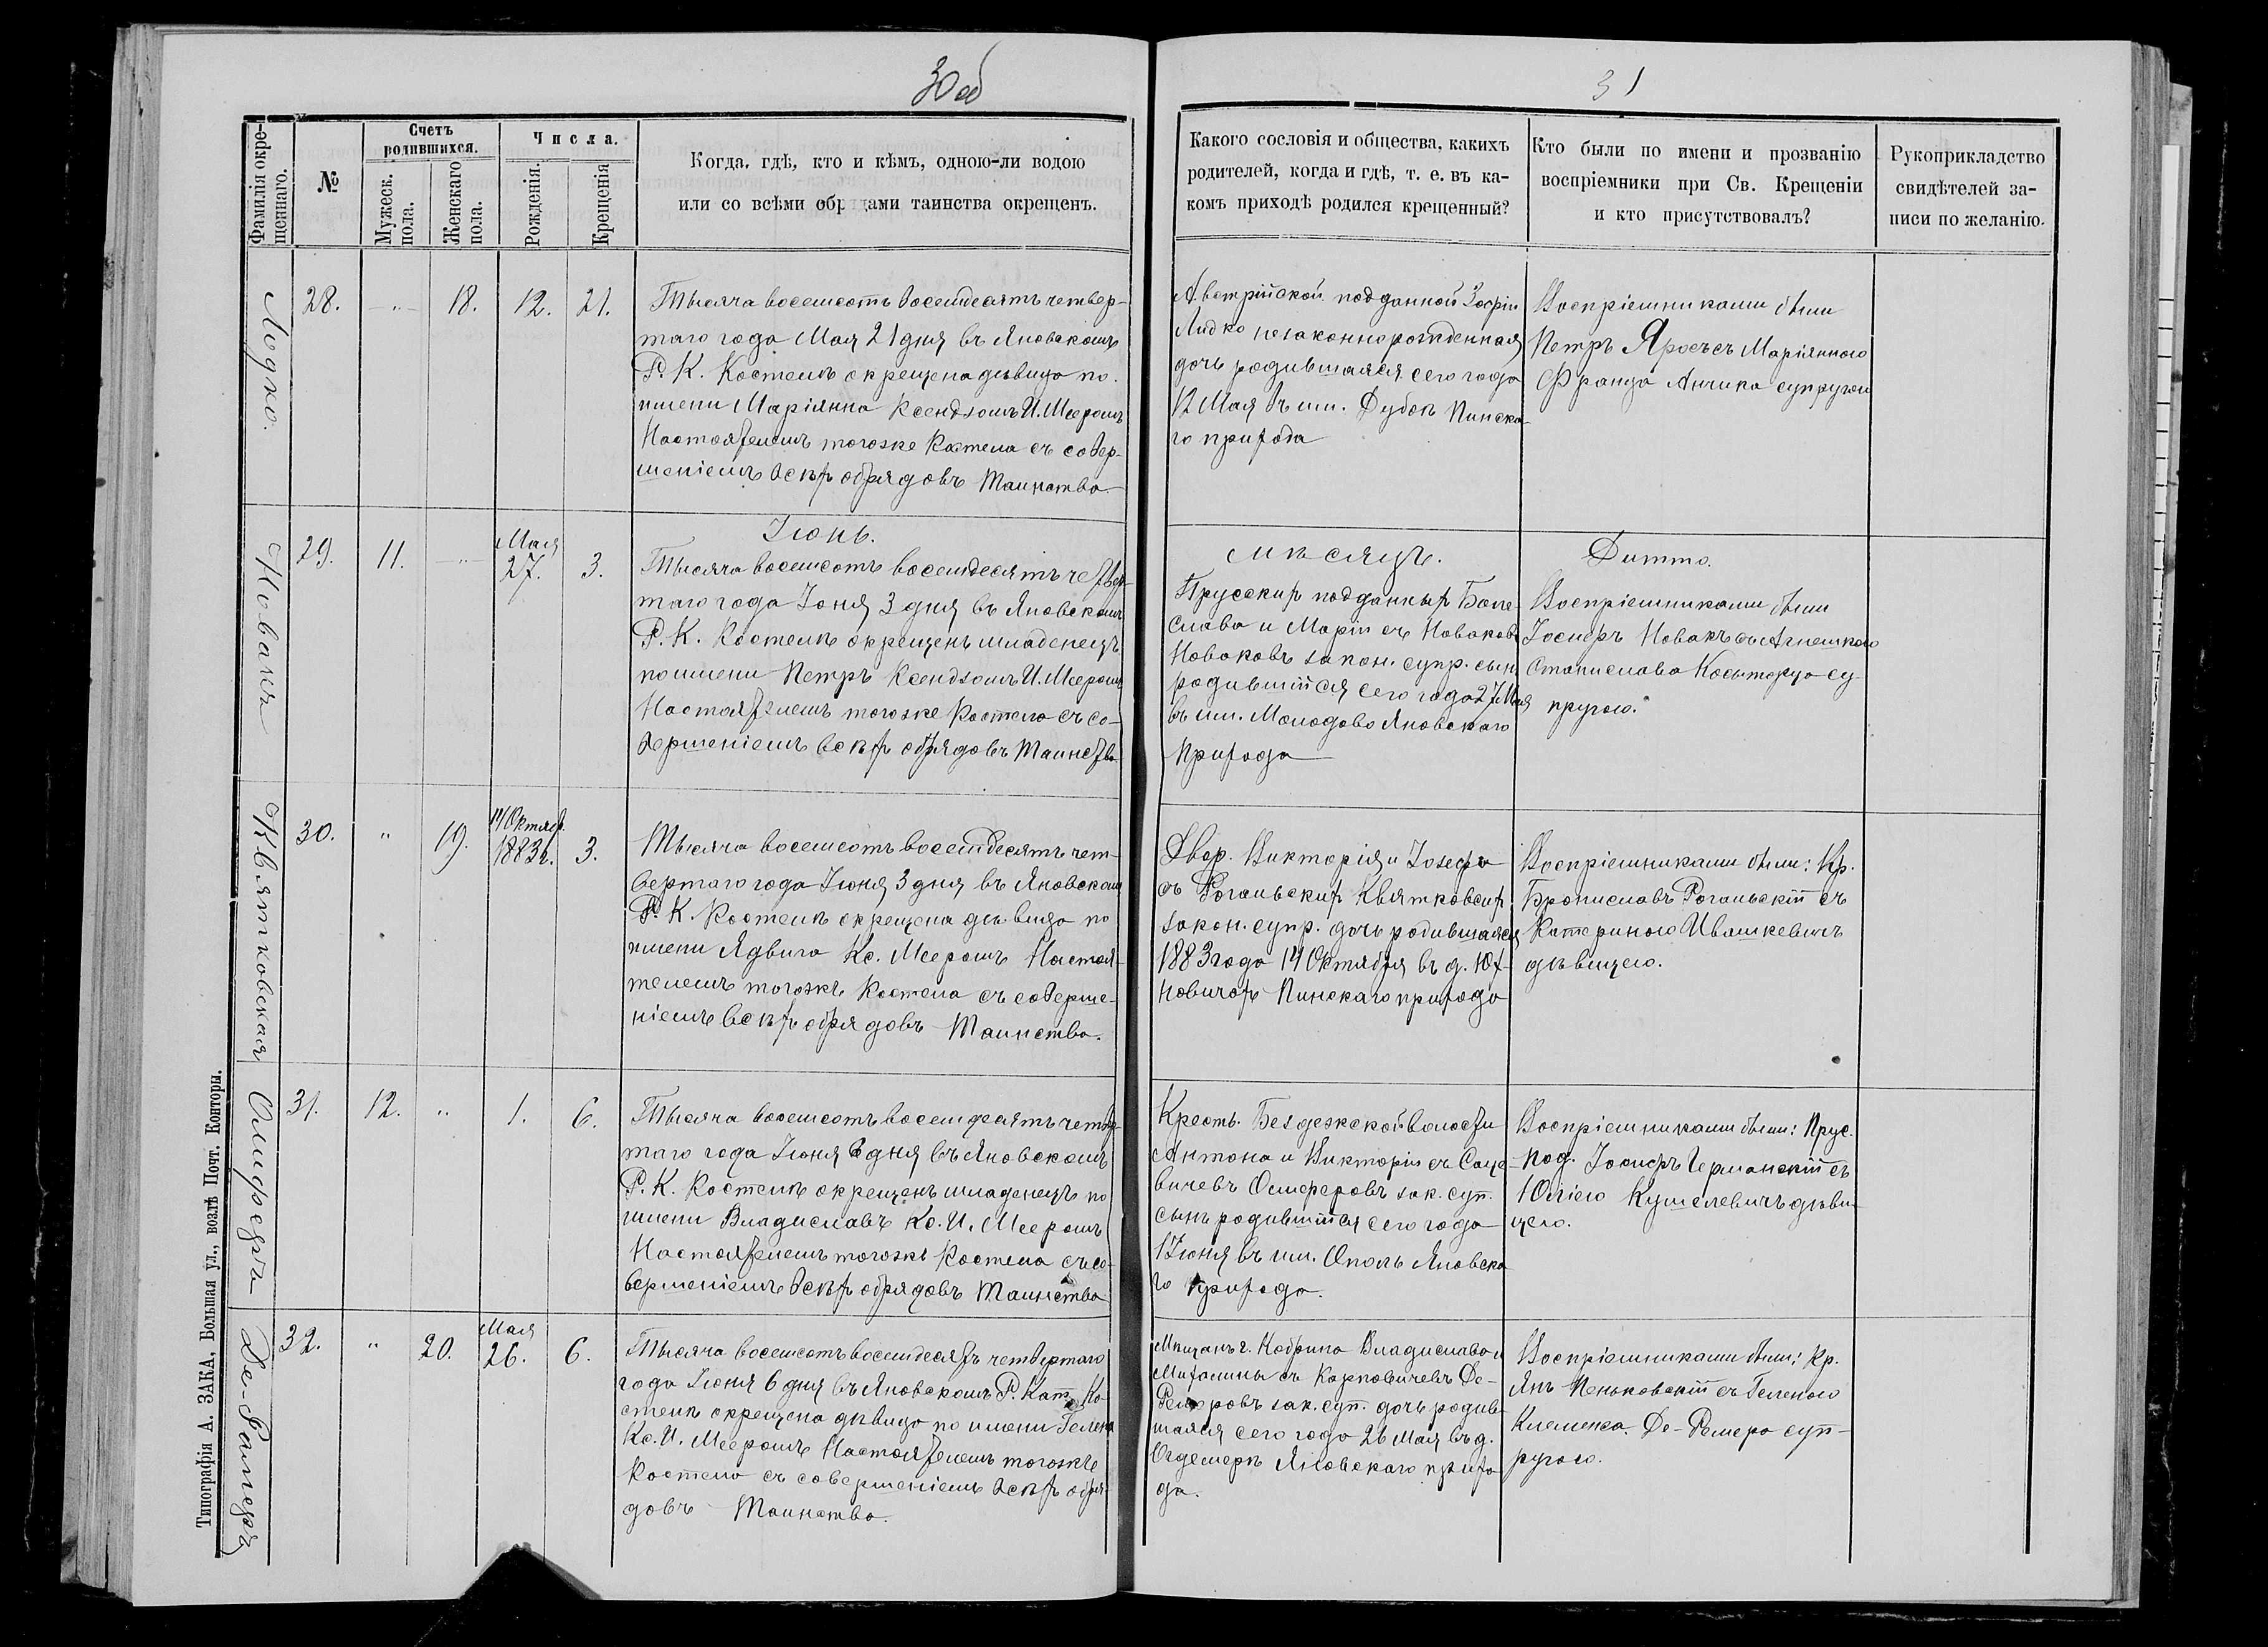 30об
31
Фамилія окре-
щеннаго.
№
Счетъ
родившихся.
Мужеск.
пола.
Женскаго
пола.
Числа.
Рожденія.
Крещенія
Когда, гдѣ, кто и кѣмъ, одною-ли водою
или со всѣми обрядами таинства окрещенъ.
Какого сословія и общества, какихъ
родителей, когда и гдѣ, т. е. въ ка-
комъ приходѣ родился крещенный?
Кто были по имени и прозванію
воспріемники при Св. Крещеніи
и кто присутствовалъ?
Рукоприкладство
свидѣтелей за-
писи по желанію.
28. " 18. 12. 21.
Тысяча восемсотъ восемдесятъ четвер-
таго года Мая 21 дня въ Яновскомъ
Р. К. Костелѣ окрещена дѣвица по
имени Маріянна Ксендзомъ И. Мееромъ
Настоятелемъ тогоже Костела съ совер-
шеніемъ всѣхъ обрядовъ Таинства
Австрійской подданной Зофіи
незаконнорожденная
дочь родившаяся сего года
12 Мая въ им. Дубок Пинска-
го прихода
Воспріемниками были
Петръ съ Маріянною
Франца супругою
Новакъ
29. 11. " Мая
27. 3.
Іюнь.
Тысяча восемсотъ восемдесятъ четвер-
таго года Іюня 3 дня въ Яновскомъ
Р. К. Костелѣ окрещенъ младенецъ
по имени Петръ Ксендзомъ И. Мееромъ
Настоятелемъ тогоже Костела съ со-
вершеніемъ всѣхъ обрядовъ Таинства
мѣсяцъ.
Прусскихъ подданныхъ Боле-
слава и Маріи съ Новаковъ
Новаковъ закон. супр. сын
родившійся сего года 27 Мая
въ им. Молодово Яновскаго
прихода
Дитто.
Воспріемниками были
Іосифъ Новакъ съ Агнешкою
Станислава су-
пругою.
Квятковская
30. " 19. 14 Октябр.
1883 г. 3.
Тысяча восемсотъ восемдесятъ чет-
вертаго года Іюня 3 дня въ Яновскомъ
Р. К. Костелѣ окрещена дѣвица по
имени Ядвига Кс. Мееромъ Настоя-
телемъ тогожъ Костела съ соверше-
ніемъ всѣхъ обрядовъ Таинства.
Двор. Викторія и Іозефа
съ Рогальскихъ Квятковских
закон. супр. дочь родившаяся
1883 года 14 Октября въ д. Юх-
новичахъ Пинскаго прихода
Воспріемниками были: Кр.
Брониславъ Рогальскій съ
Катериною Ивашкевичъ
дѣвицею.
31. 12. " 1. 6.
Тысяча восемсотъ восемдесятъ четвер-
таго года Іюня 6 дня въ Яновскомъ
Р. К. Костелѣ окрещенъ младенецъ по
имени Владиславъ Кс. И. Мееромъ
Настоятелемъ тогожъ Костела съ со-
вершеніемъ всѣхъ обрядовъ Таинства
Крест. Бездежской волости
Антона и Викторіи съ
зак. суп.
сынъ родившійся сего года
1 Іюня въ им. Ополь Яновска-
го прихода.
Воспріемниками были: Прус.
под. Іосифъ Германскій съ
Юліею Кушелевичъ дѣви-
цею.
32. " 20. Мая
26. 6.
Тысяча восемсотъ восемдесятъ четвертаго
года Іюня 6 дня въ Яновскомъ Р. Кат. Ко-
стелѣ окрещена дѣвица по имени Гелена
Кс. И. Мееромъ Настоятелемъ тогожъ
Костела съ совершеніемъ всѣхъ обря-
довъ Таинства.
Мѣщанъ г. Кобрина Владислава и
Михалины съ Карповичевъ Де-
зак. суп. дочь родив-
шаяся сего года 26 Мая въ д.
Яновскаго прихо-
да.
Воспріемниками были: Кр.
Янъ Пеньковскій съ Геленою
Клеменса Де- суп-
ругою.
Типографія А. ЗАКА, Большая ул., возлѣ Почт. Конторы.